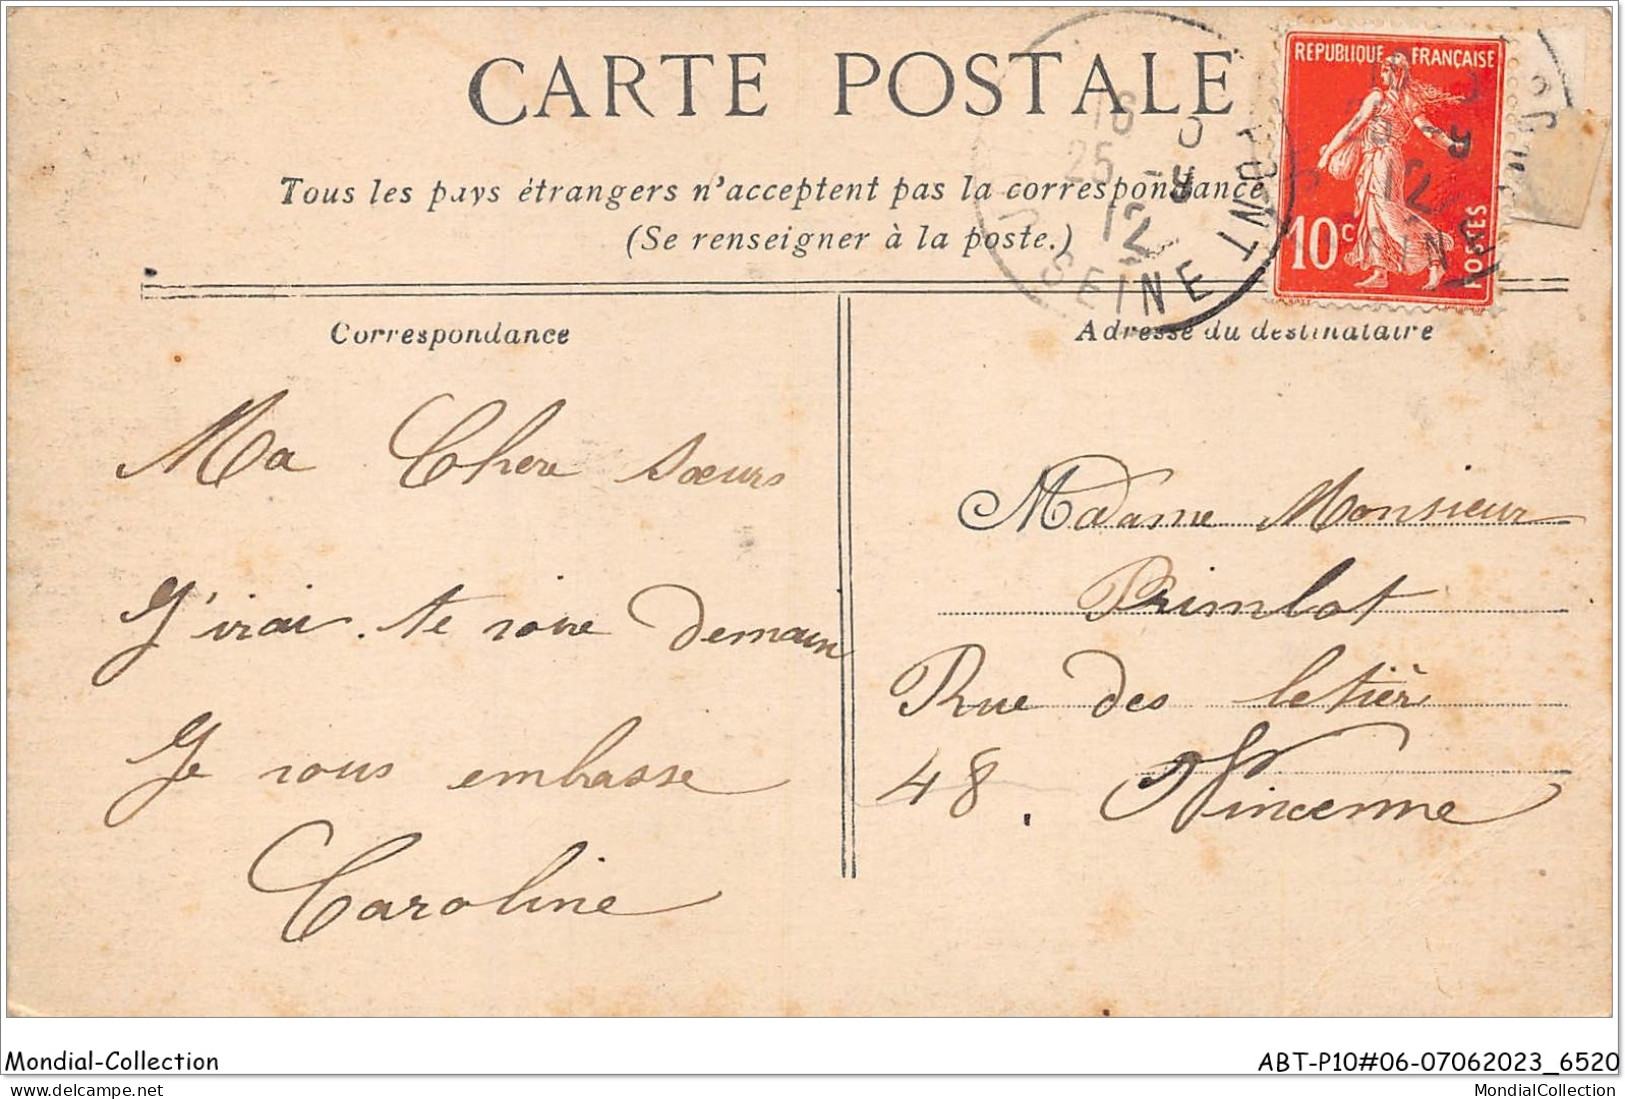 CARTE POSTALE
REPUBLIQUE FRANÇAISE
10c
POSTES
Tous les pays étrangers n'acceptent pas la correspondance
(Se renseigner à la poste.)
16
25 -9
12
SEINE
Correspondance
Adresse du destinataire
Ma Chere sœurs
J'irai te voire demain
Je vous embasse
Caroline
Madame Monsieur
Primbot
Rue des letièr
48. Vincenne
Mondial-Collection
ABT-P10#06-07062023_6520
www.delcampe.net
MondialCollection